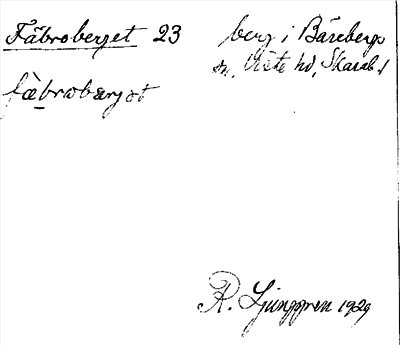 Fäbroberget 23
berg i Bärebergs
sn, Viste hd, Skarab. l
fäbrobærjət
R. Ljunggren 1929